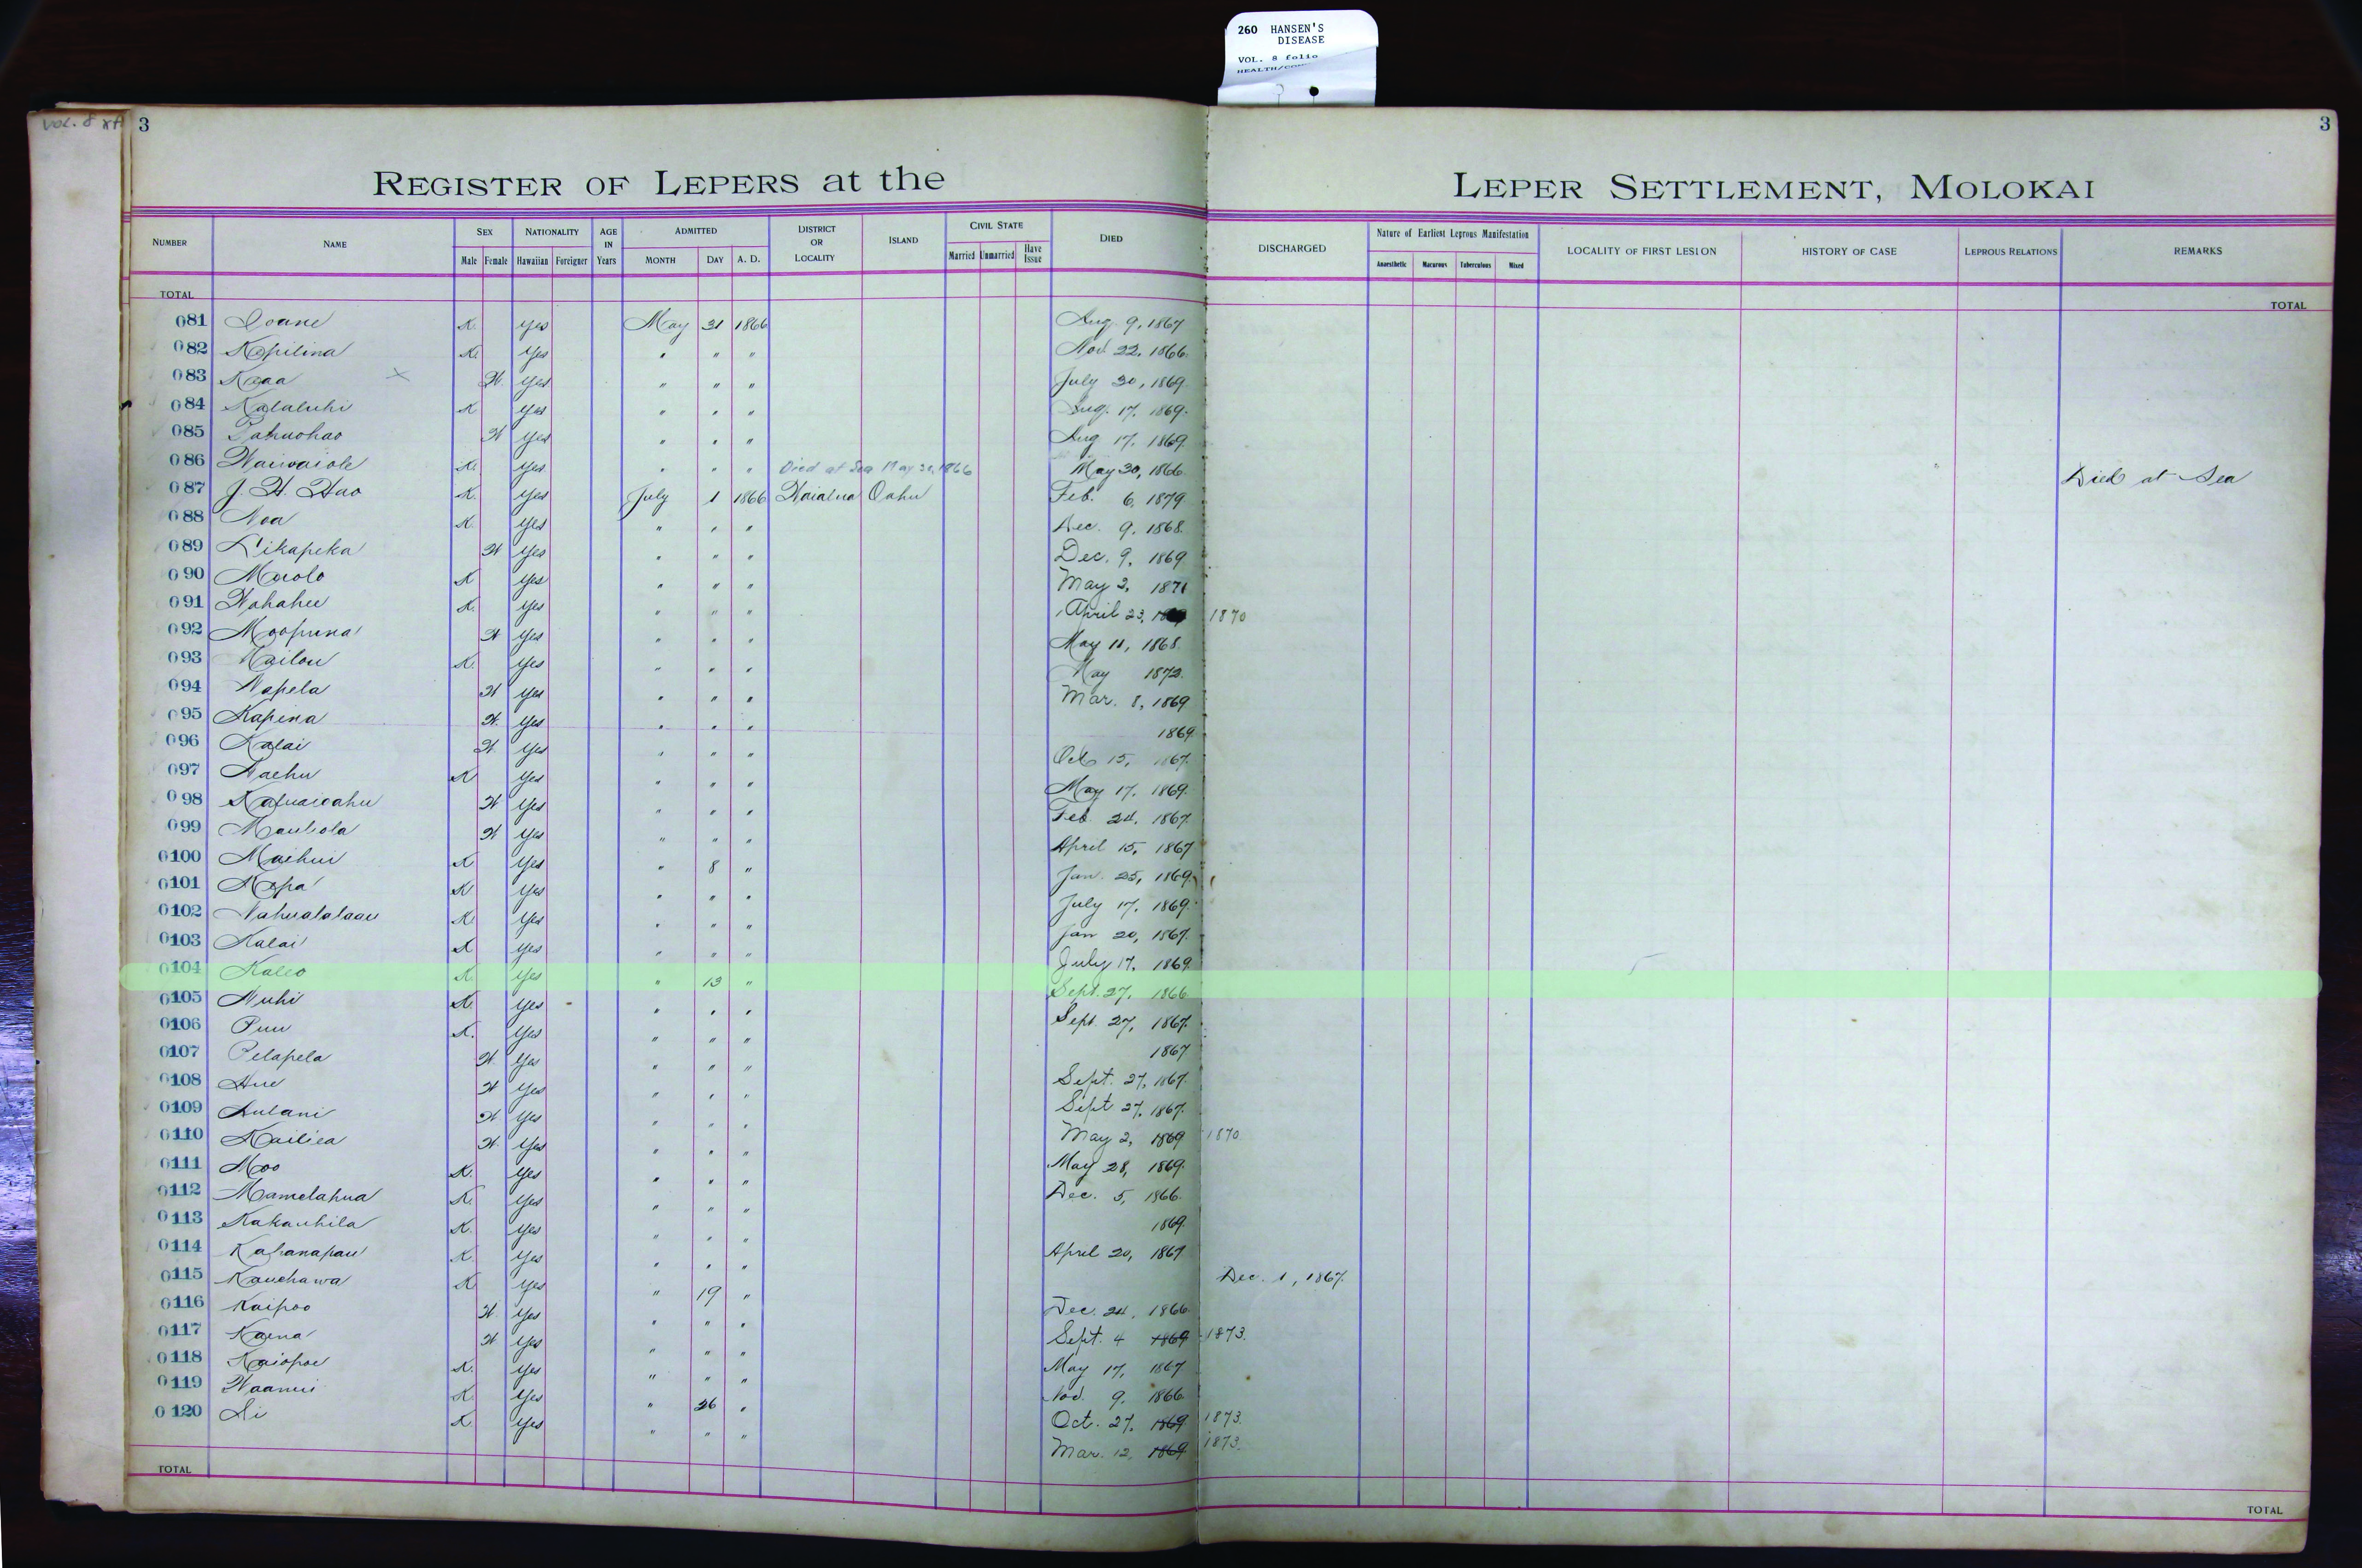 260 HANSEN'S
DISEASE
VOL. 8 folio
Vol. 8
3 3
REGISTER OF LEPERS at the LEPER SETTLEMENT, MOLOKAI
NUMBER NAME SEX Male Female NATIONALITY Hawaiian Foreigner AGE IN Years ADMITTED MONTH DAY A. D. DISTRICT OR LOCALITY ISLAND CIVIL STATE Married Unmarried Have Issue DIED DISCHARGED Nature of Earliest Leprous Manifestation Anaesthetic Macurous Tuberculous Mixed LOCALITY OF FIRST LESION HISTORY OF CASE LEPROUS RELATIONS REMARKS
TOTAL TOTAL
081 Ioane K. Yes May 31 1866 Aug. 9, 1867
082 Kepilina K. Yes " " " Nov. 22, 1866.
083 Kaaa x W. Yes " " " July 30, 1869.
084 Kalaluhi K Yes " " " Aug. 17, 1869.
085 Pahuohao W Yes " " " Aug 17, 1869.
086 Waiwaiole K. Yes " " " Died at Sea May 30, 1866 May 30, 1866. Died at Sea
087 J. H. Hao K. Yes July 1 1866 Waialua Oahu Feb. 6, 1879
088 Noa K. Yes " " " Dec. 9, 1868.
089 Likapeka W Yes " " " Dec. 9, 1869
090 Maolo K Yes " " " May 2, 1871
091 Wahahee K. Yes " " " April 23, 1870
092 Moopuna W Yes " " " May 11, 1868.
093 Kailou K. Yes " " " May 1872.
094 Napela W Yes " " " Mar. 8, 1869
095 Kapina W. Yes " " " 1869.
096 Kalai W Yes " " " Oct 15, 1867.
097 Naehu K Yes " " " May 17, 1869.
098 W Yes " " " Feb. 24, 1867.
099 Mauliola W Yes " " " April 15, 1867
0100 Maihui K Yes " 8 " Jan. 25, 1869.
0101 Mopa K Yes " " " July 17, 1869.
0102 Nahualalaau K. Yes " " " Jan 20, 1867.
0103 Kalai K Yes " " " July 17, 1869.
0104 Kaleo K. Yes " 13 " Sept. 27, 1866
0105 Nuhi K. Yes " " " Sept. 27, 1867.
0106 Puu K. Yes " " " 1867
0107 Pelapela W Yes " " " Sept. 27, 1867.
0108 Hue W Yes " " " Sept 27, 1867.
0109 Aulani W Yes " " " May 2, 1869 1870
0110 Kailiea W. Yes " " " May 28, 1869.
0111 Moo K. Yes " " " Dec. 5, 1866.
0112 Mamelahua K. Yes " " " 1869.
0113 Kakauhila K. Yes " " " April 20, 1867
0114 Kahanapau K. Yes " " " Dec. 1, 1867.
0115 Kauehawa K. Yes " 19 " Dec. 24, 1866.
0116 Kaipoo W. Yes " " " Sept. 4 1869 1873.
0117 Kaena W Yes " " " May 17, 1867
0118 Kaiopoe K. Yes " " " Nov. 9, 1866.
0119 Waanui K. Yes " 26 " Oct. 27, 1869 1873.
0120 Ai K. Yes " " " Mar. 12, 1869 1873.
TOTAL TOTAL